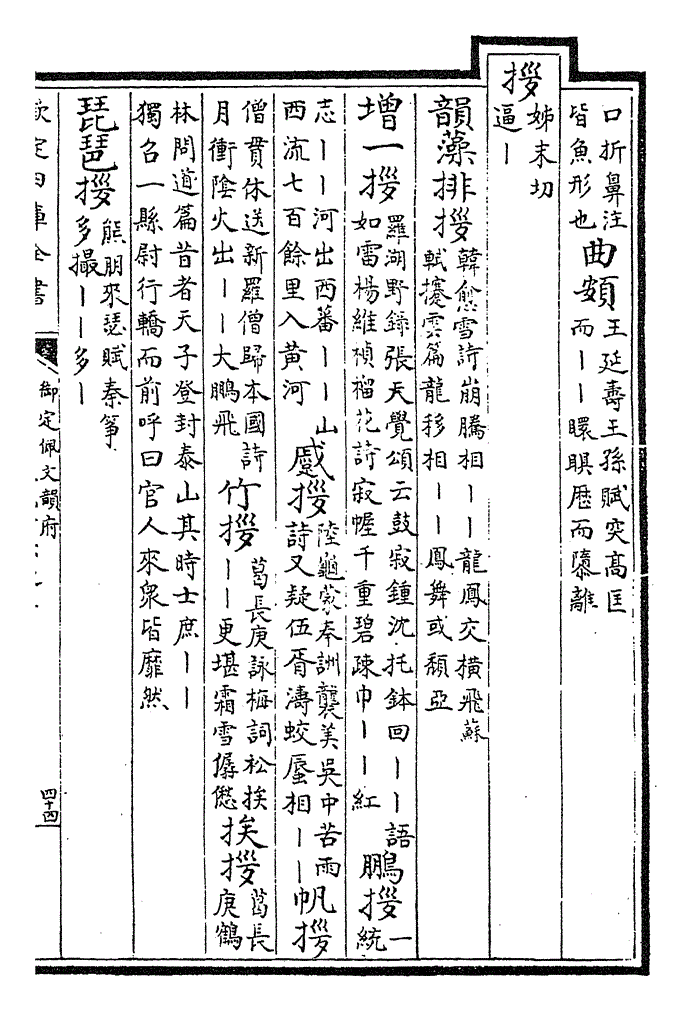 口折鼻注
皆魚形也
曲頞
王延壽王孫賦突高匡
而丨丨瞁瞁歴而隳離
拶
姊末切
逼丨
韻藻
排拶
韓愈雪詩崩騰相丨丨龍鳳交横飛蘇
軾攓雲篇龍移相丨丨鳳舞或頹亞
增
一拶
羅湖野錄張天覺頌云鼓寂鍾沈托鉢回丨丨語
如雷楊維禎榴花詩寂幄千重碧疎巾丨丨紅
鵬拶
一統
志丨丨河出西蕃丨丨山
西流七百餘里入黄河
蹙拶
陸龜蒙奉詶襲美吳中苦雨
詩又疑伍胥濤蛟蜃相丨丨
帆拶
僧貫休送新羅僧歸本國詩
月衝陰火出丨丨大鵬飛
竹拶
葛長庚詠梅詞松挨
丨丨更堪霜雪僝僽
挨拶
葛長庚鶴
林問道篇昔者天子登封泰山其時士庶丨丨
獨召一縣尉行轎而前呼曰官人來衆皆靡然
琵琶拶
熊朋來瑟賦秦箏
多撮丨丨多丨
欽定四庫全書
御定佩文韻府
四十四